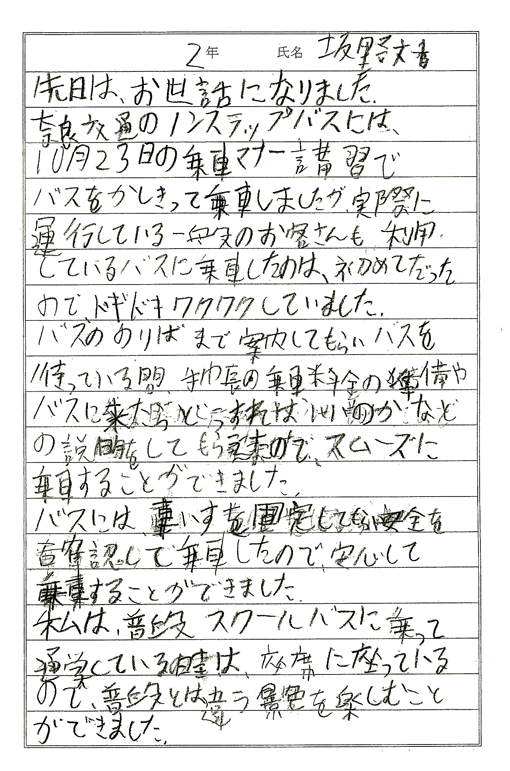 2年 氏名 坂野文香
先日は、お世話になりました。
奈良交通のノンステップバスには、
10月23日の乗車マナー講習で
バスをかしきって乗車しましたが、実際に
運行している一般のお客さんも利用
しているバスに乗車したのは、初めてだった
ので、ドキドキワクワクしていました。
バスののりばまで案内してもらいバスを
待っている間 手帳の乗車料金の準備や
バスに来たらどうすればいいのかなど
の説明をしてもらえたので、スムーズに
乗車することができました。
バスには、車いすを固定しても安全を
確認して乗車したので、安心して
乗車することができました。
私は、普段スクールバスに乗って
通学している時は、座席に座っている
ので、普段とは違う景色を楽しむこと
ができました。